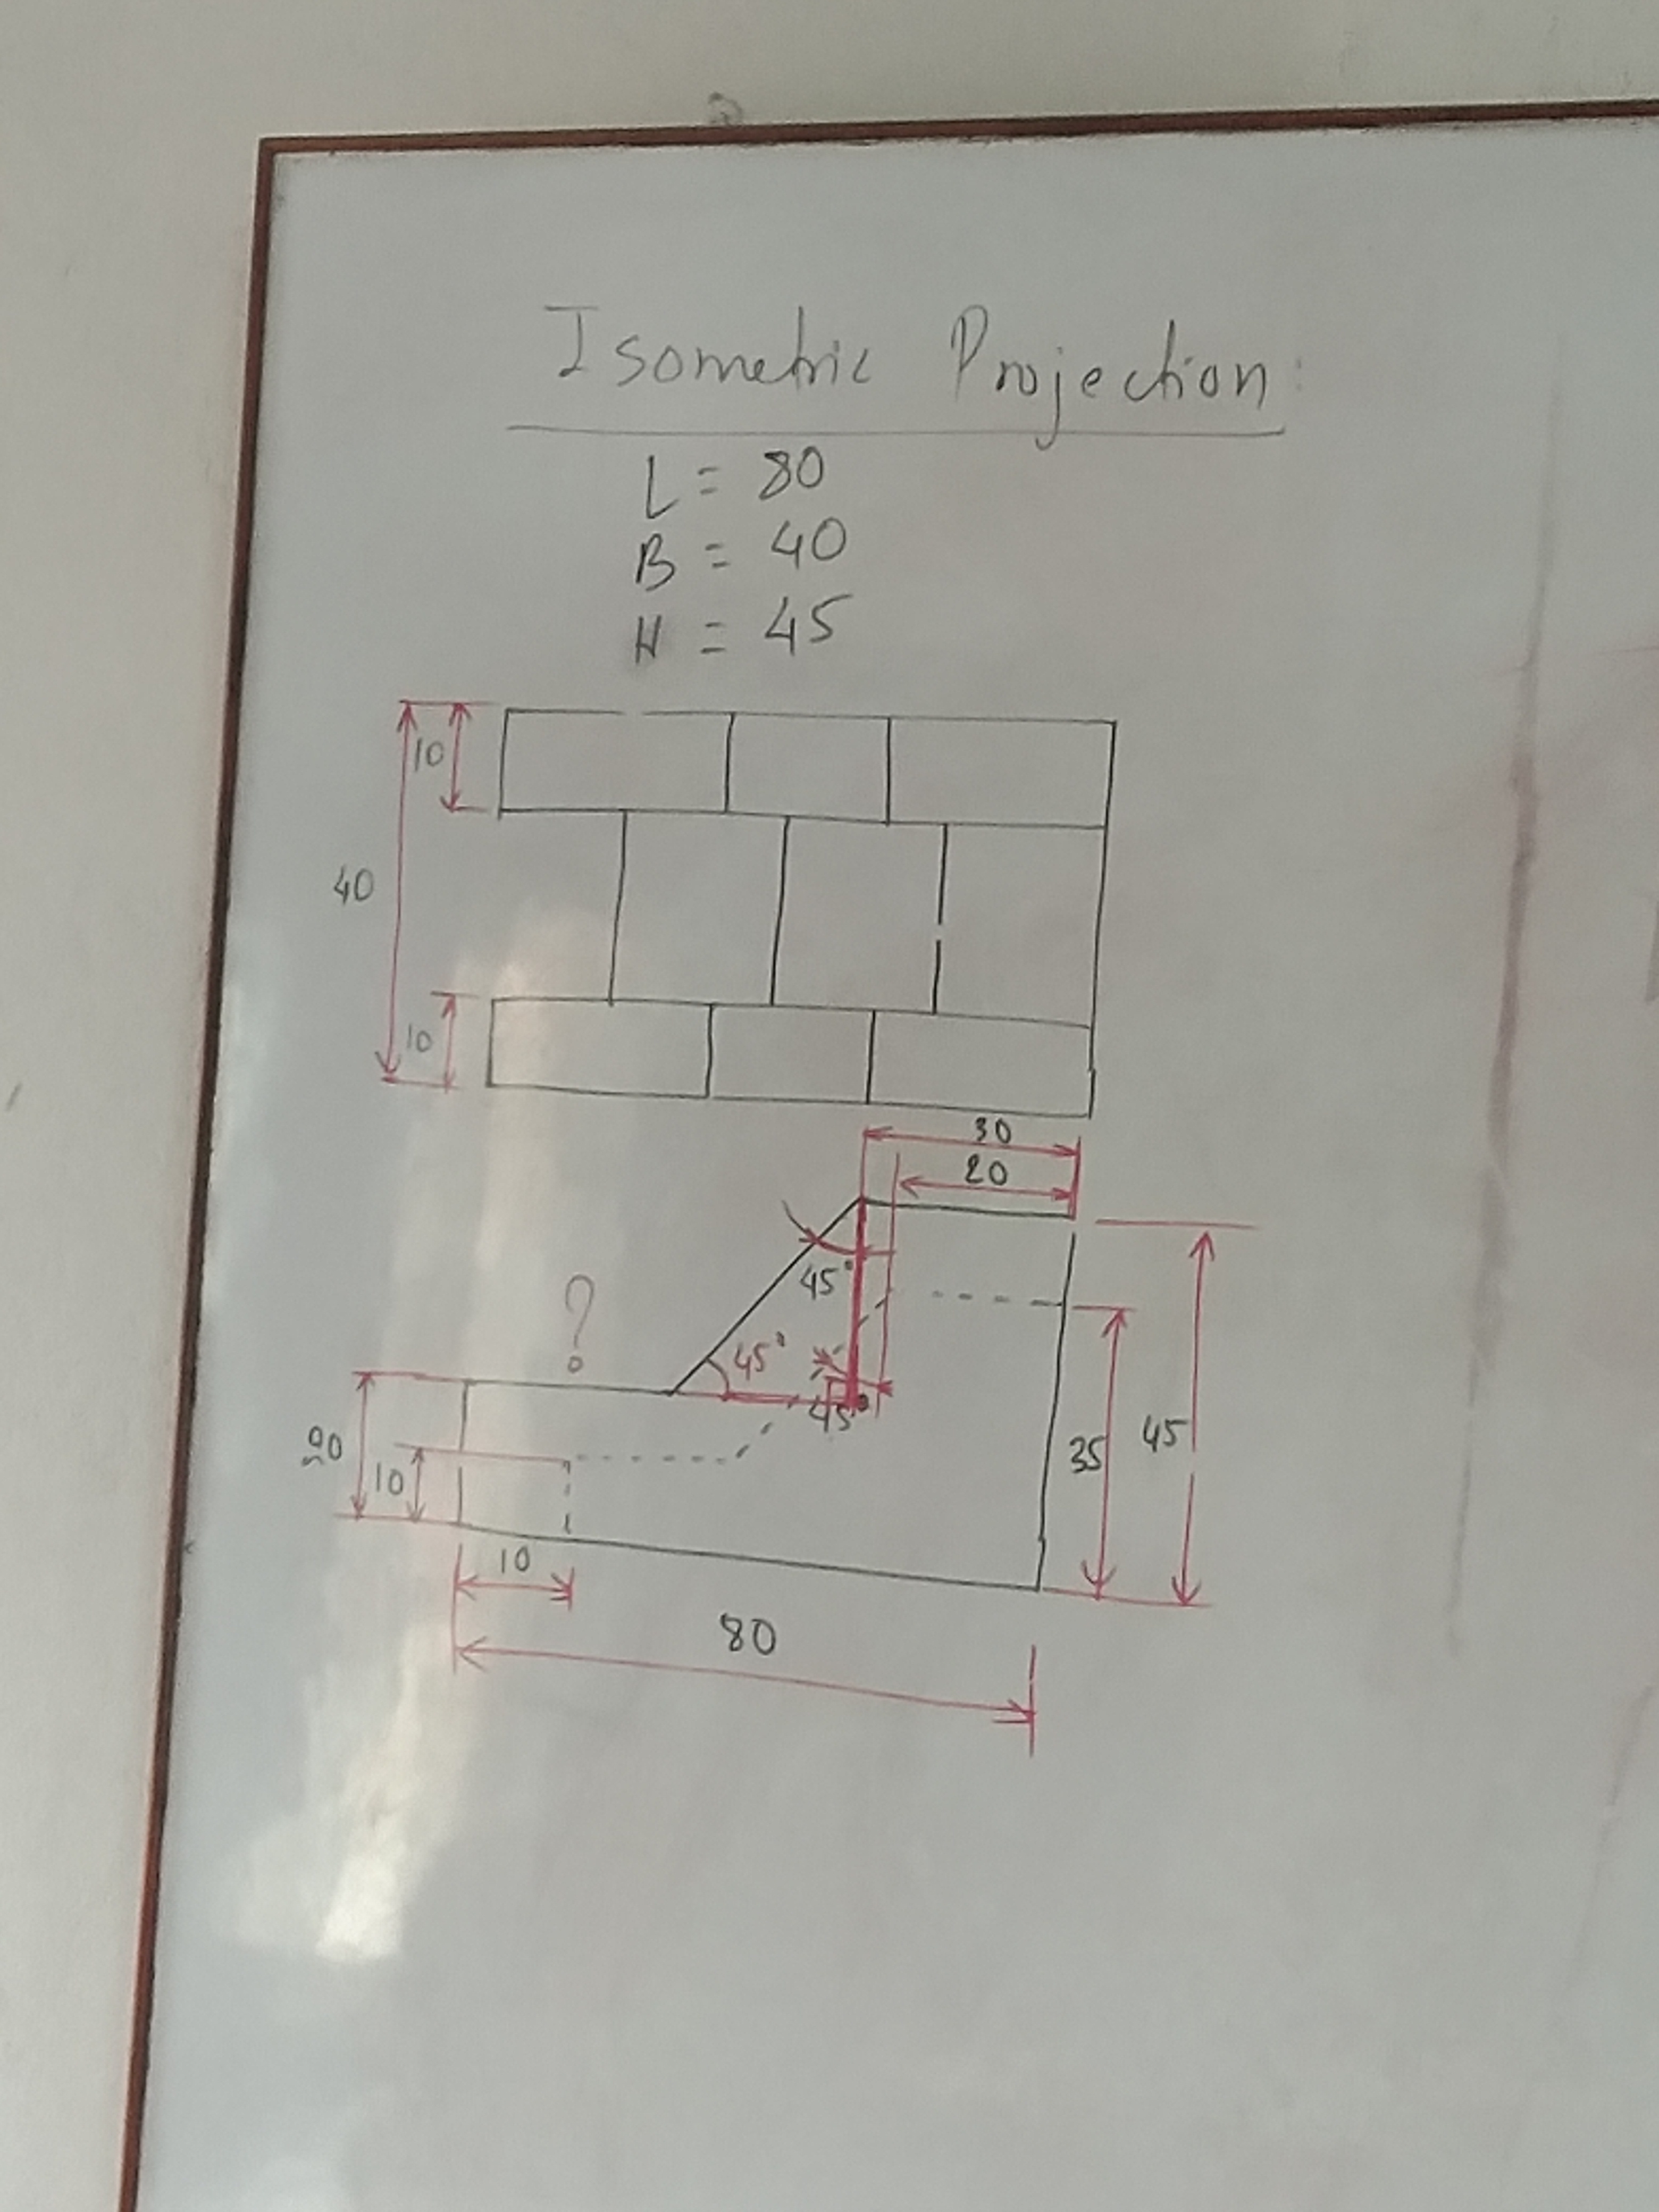 Isometric Projection:
L = 80
B = 40
H = 45
10
40
10
30
20
45°
?
45°
45°
20
10
35
45
10
80